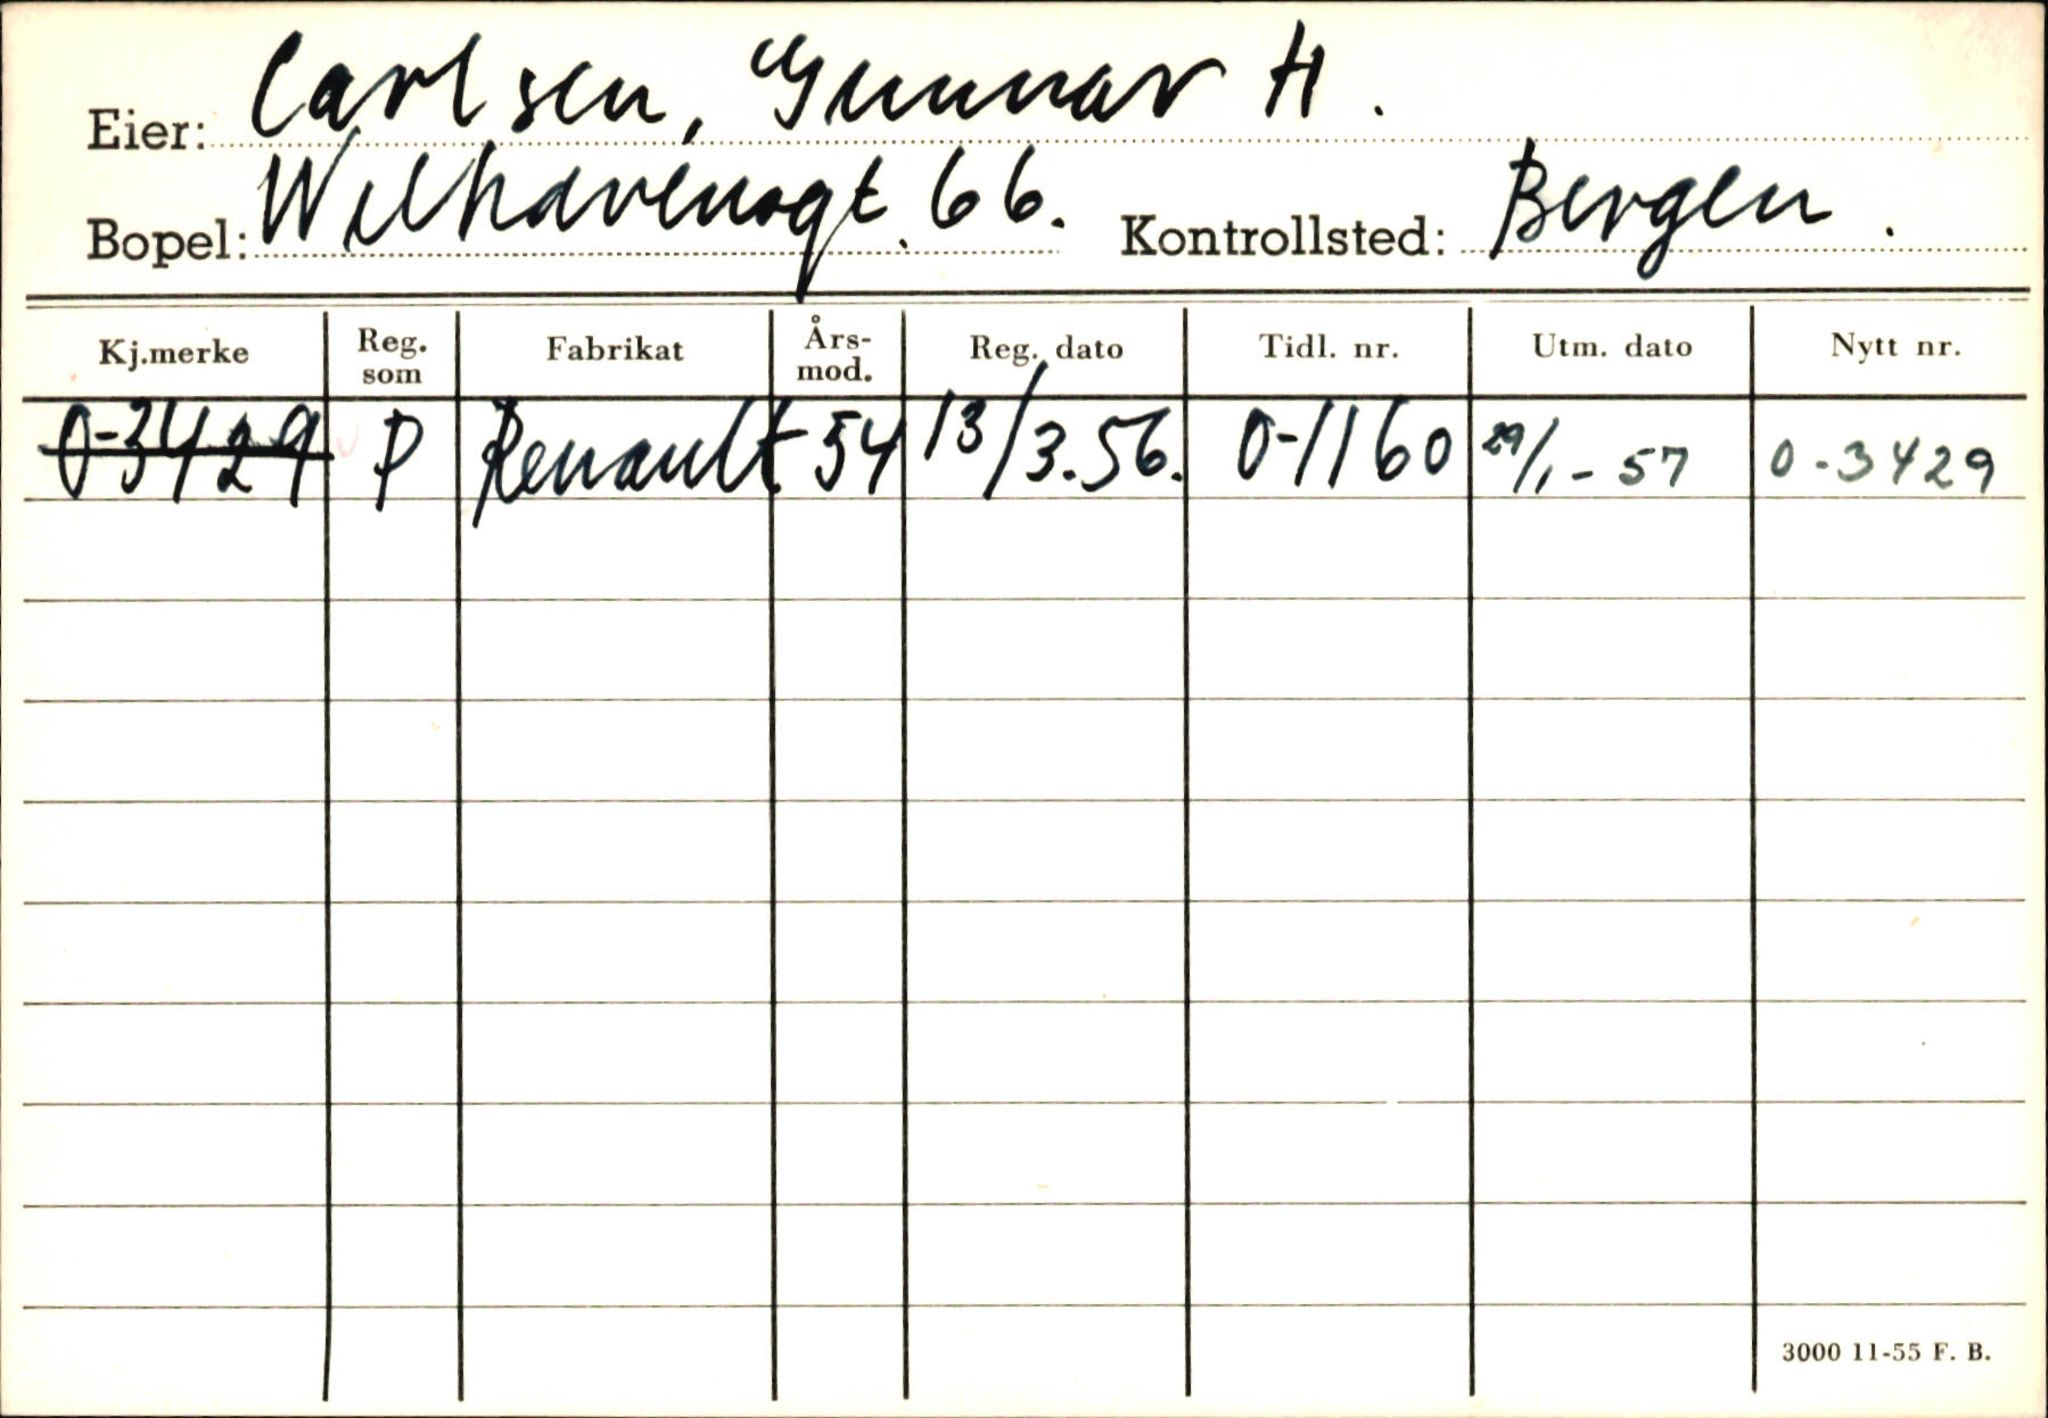 Eier: Carlsen, Gunnar H.
Bopel: Wilhavensgt. 66. Kontrollsted: Bergen.
Kj.merke Reg. som Fabrikat Års-mod. Reg. dato Tidl. nr. Utm. dato Nytt nr.
O-3429 P Renault 54 13/3.56. O-1160 29/1-57 O-3429
3000 11-55 F. B.